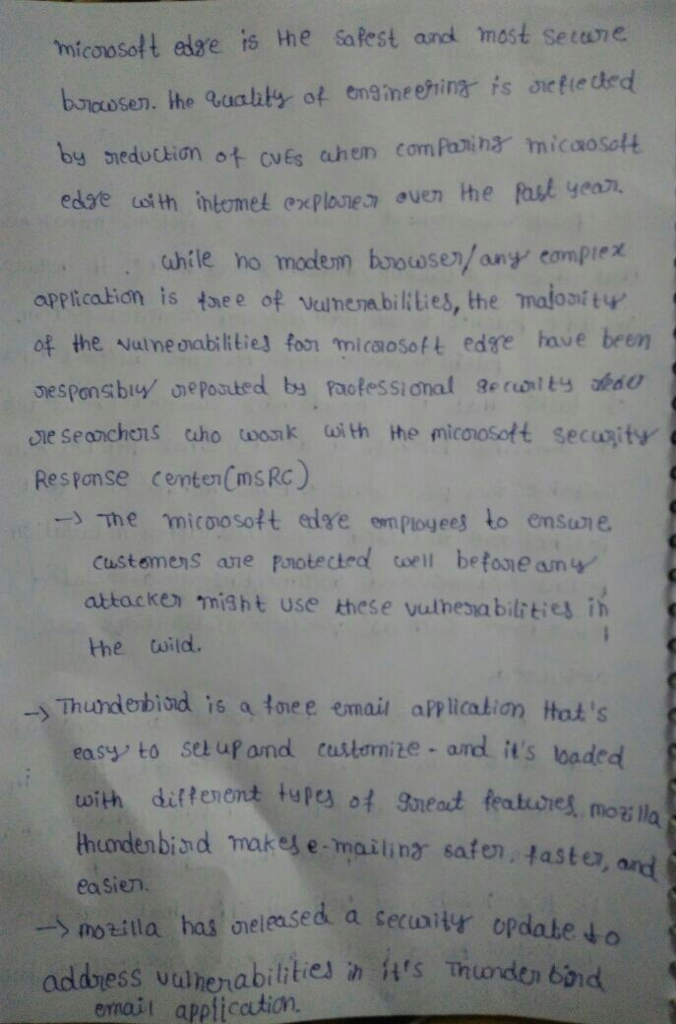 microsoft edge is the safest and most secure
browser. the quality of engineering is reflected
by reduction of CVEs when comparing microsoft
edge with internet explorer over the past year.
while no modern browser/any complex
application is free of vulnerabilities, the majority
of the vulnerabilities for microsoft edge have been
responsibly reported by professional security
researchers who work with the microsoft security
Response center(msRC)
→ The microsoft edge employees to ensure
customers are protected well before any
attacker might use these vulnerabilities in
the wild.
→ Thunderbird is a free email application that's
easy to setup and customize - and it's loaded
with different types of great features. mozilla
thunderbird makes e-mailing safer, faster, and
easier.
→ mozilla has released a security update to
address vulnerabilities in it's Thunderbird
email application.